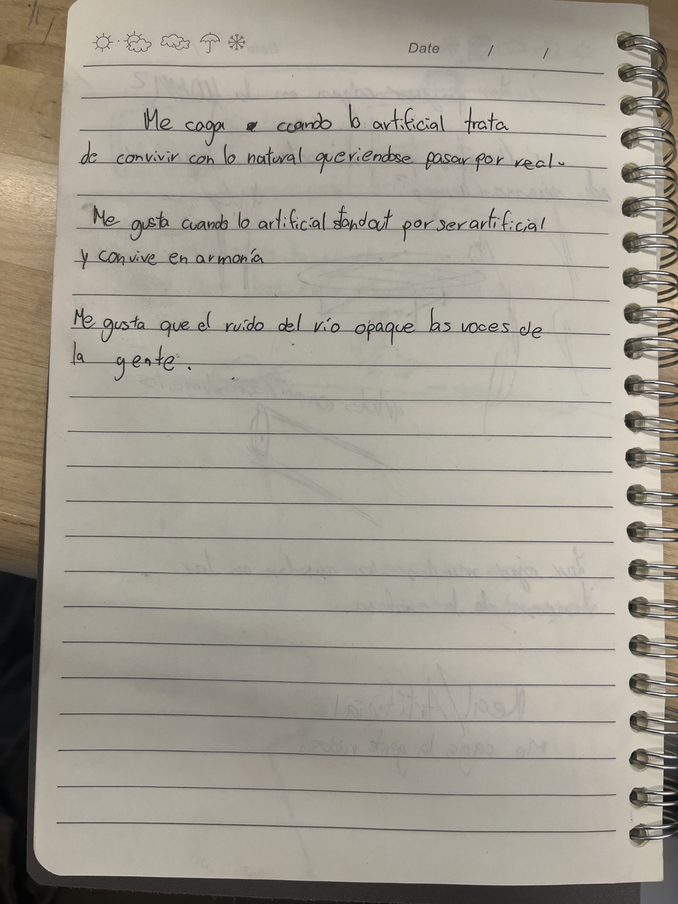 Date / /
Me caga cuando lo artificial trata
de convivir con lo natural queriendose pasar por real.
Me gusta cuando lo artificial standout por ser artificial
y convive en armonía
Me gusta que el ruido del río opaque las voces de
la gente.